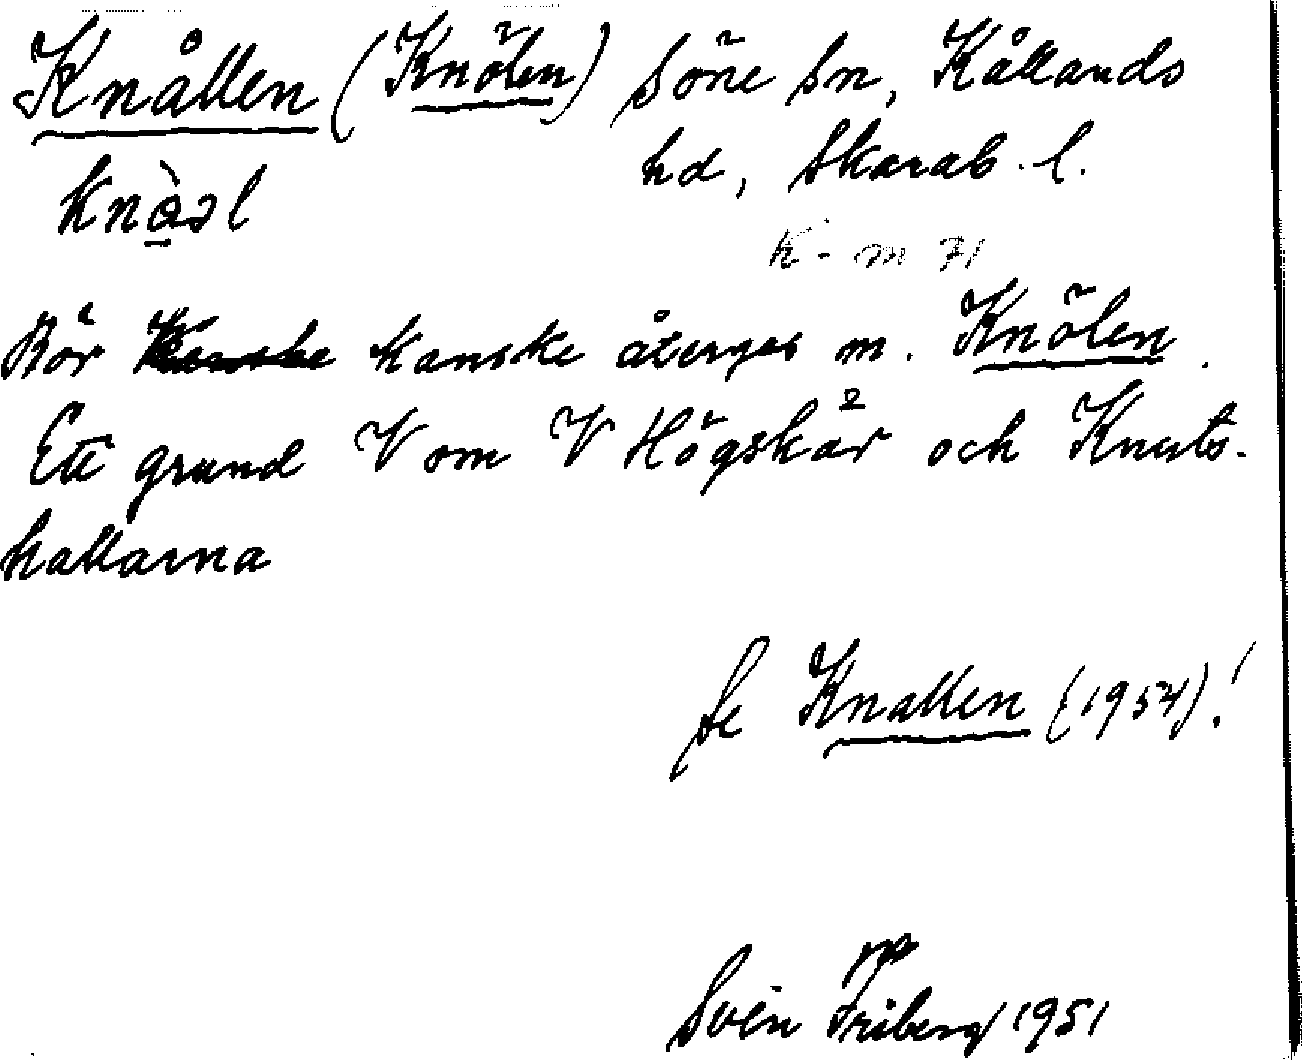 Knållen (Knölen) Söne sn, Kållands
hd, Skarab. l.
K - m 71
Bör kanske återges m. Knölen.
Ett grund V om V Högskär och Knuts-
hallarna
Se Knallen (1954)!
Sven Friberg 1951